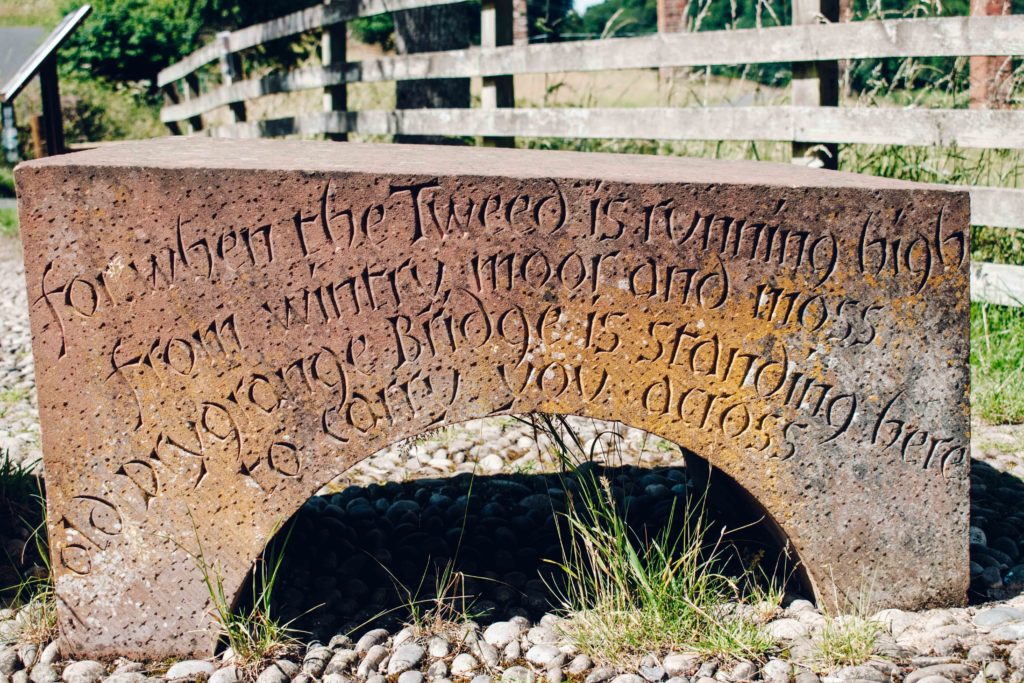 for when the Tweed is running high
from wintry moor and moss
old Drygrange Bridge is standing here
to carry you across